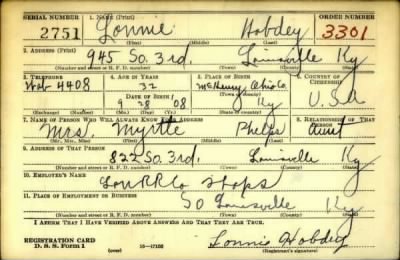 SERIAL NUMBER 1. NAME (Print) ORDER NUMBER
2751 Lonnie Hobdey 3301
(First) (Middle) (Last)
2. ADDRESS (Print)
945 So. 3rd. Louisville Ky
(Number and street or R. F. D. number) (Town) (County) (State)
3. TELEPHONE 4. AGE IN YEARS 5. PLACE OF BIRTH 6. COUNTRY OF CITIZENSHIP
Wab 4408 32 McHenry Ohio Co.
DATE OF BIRTH
9 28 08 Ky U.S.A
(Mo.) (Day) (Yr.)
7. NAME OF PERSON WHO WILL ALWAYS KNOW YOUR ADDRESS 8. RELATIONSHIP OF THAT PERSON
Mrs. Myrtle Phelps Aunt
(Mr., Mrs., Miss) (First) (Middle) (Last)
9. ADDRESS OF THAT PERSON
822 So. 3rd. Louisville Ky
(Number and street or R. F. D. number) (Town) (County) (State)
10. EMPLOYER'S NAME
Lou RR Co Shops
11. PLACE OF EMPLOYMENT OR BUSINESS
So Louisville Ky
(Number and street or R. F. D. number) (Town) (County) (State)
I AFFIRM THAT I HAVE VERIFIED ABOVE ANSWERS AND THAT THEY ARE TRUE.
REGISTRATION CARD
D. S. S. Form 1 (over) 16-17105 Lonnie Hobdey
(Registrant's signature)